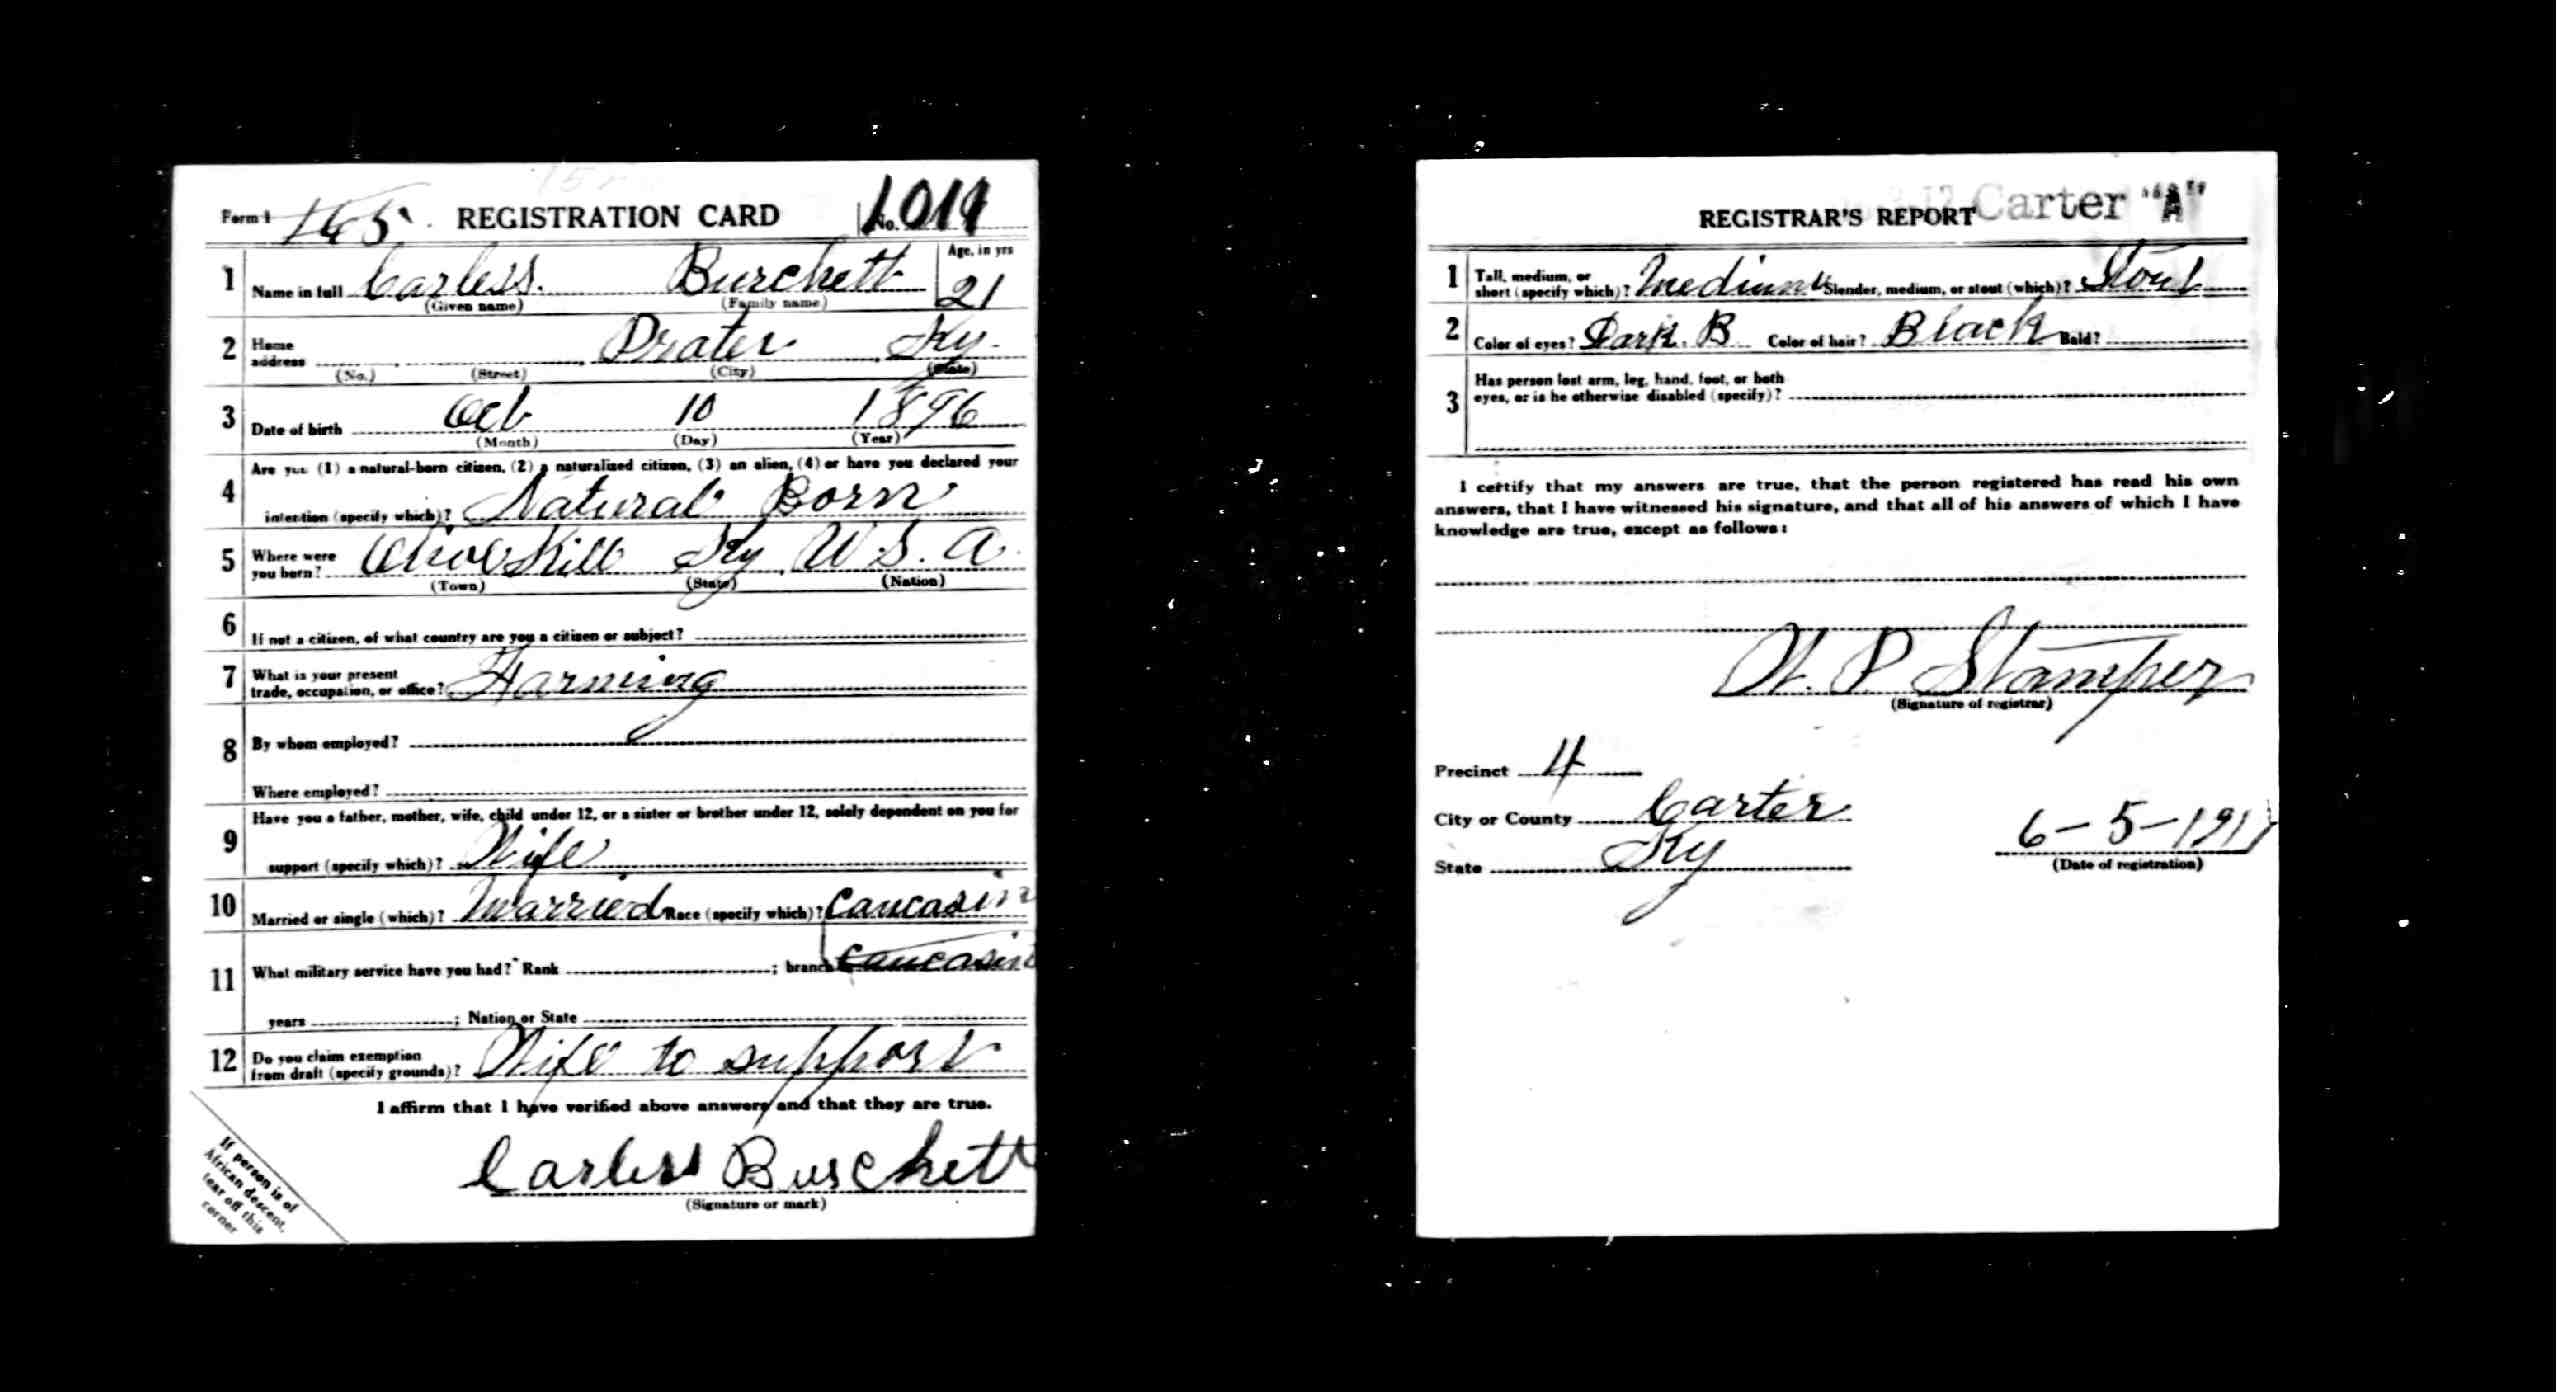 Form 1 165 REGISTRATION CARD No. 1011
1 Name in full Carless. Burchett Age, in yrs 21
(Given name) (Family name)
2 Home address Prater Ky.
(No.) (Street) (City) (State)
3 Date of birth Oct 10 1896
(Month) (Day) (Year)
4 Are you (1) a natural-born citizen, (2) a naturalized citizen, (3) an alien, (4) or have you declared your
intention (specify which)? Natural Born
5 Where were you born? Olive Hill Ky U.S.A.
(Town) (State) (Nation)
6 If not a citizen, of what country are you a citizen or subject?
7 What is your present trade, occupation, or office? Farming
8 By whom employed?
Where employed?
9 Have you a father, mother, wife, child under 12, or a sister or brother under 12, solely dependent on you for
support (specify which)? Wife
10 Married or single (which)? Married Race (specify which)? Caucasin
11 What military service have you had? Rank ; branch Caucasin
years ; Nation or State
12 Do you claim exemption from draft (specify grounds)? Wife to support
I affirm that I have verified above answers and that they are true.
Carless Burchett
(Signature or mark)
If person is of
African descent,
tear off this
corner
REGISTRAR'S REPORT Carter "A"
1 Tall, medium, or short (specify which)? Medium Slender, medium, or stout (which)? Stout
2 Color of eyes? Dark. B Color of hair? Black Bald?
3 Has person lost arm, leg, hand, foot, or both
eyes, or is he otherwise disabled (specify)?
I certify that my answers are true, that the person registered has read his own
answers, that I have witnessed his signature, and that all of his answers of which I have
knowledge are true, except as follows:
W. P Stamper
(Signature of registrar)
Precinct 4
City or County Carter
State Ky
6-5-1917
(Date of registration)